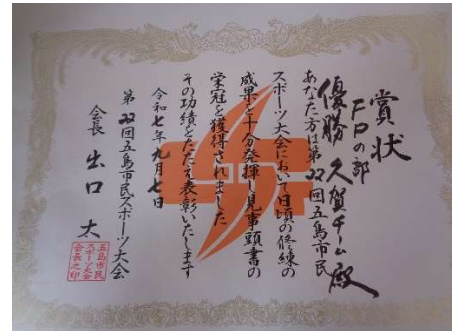 賞状
FPの部
優勝 久賀チーム殿
あなた方は第22回五島市民
スポーツ大会において日頃の修練の
成果を十分発揮し見事頭書の
栄冠を獲得されました
その功績をたたえ表彰いたします
令和七年九月七日
第22回五島市民スポーツ大会
会長 出口 太
五島市民
スポーツ大会
会長之印